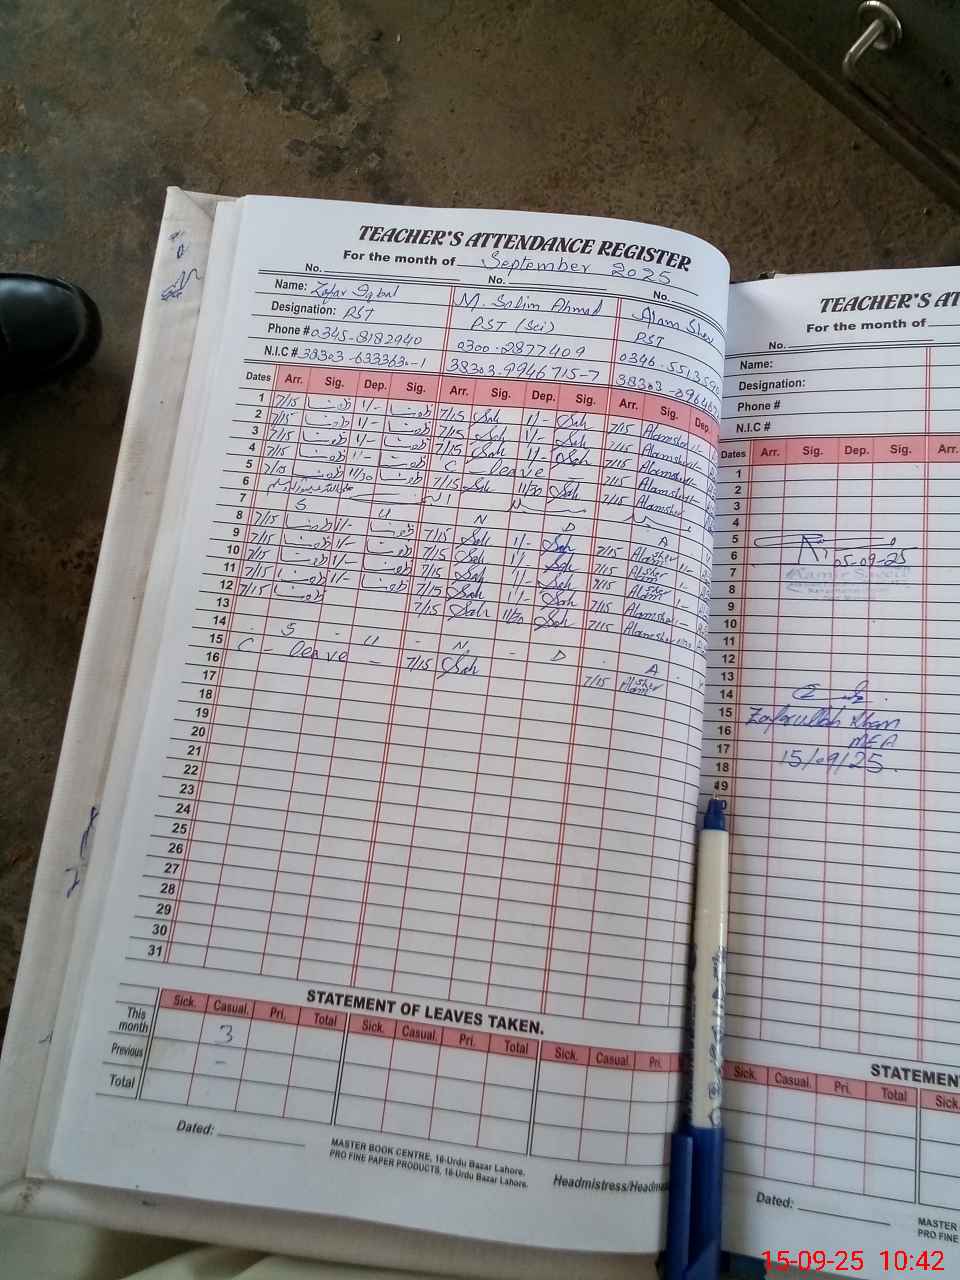 TEACHER'S ATTENDANCE REGISTER
For the month of September 2025
No. No. No.
Name: Zafar Iqbal M. Salim Ahmad Alam Sher
Designation: PST PST (Sci) PST
Phone # 0345-8182940 0300-2877409 0346-55135
N.I.C # 38303-6333630-1 38303-9946715-7 38303-
Dates Arr. Sig. Dep. Sig. Arr. Sig. Dep. Sig. Arr. Sig. Dep.
1 7/15 1/- 7/15 1/- 7/15 Alamsher
2 7/15 1/- 7/15 1/- 7/15 Alamsher
3 7/15 1/- 7/15 1/- 7/15 Alamsher
4 7/15 1/- C - leave - 7/15 Alamsher
5 7/15 11/30 7/15 11/30 7/15 Alamsher
6
7 S U N D A
8 7/15 1/- 7/15 1/- 7/15 Alamsher 1/-
9 7/15 1/- 7/15 1/- 7/15 Alamsher 1-
10 7/15 1/- 7/15 1/- 7/15 Alamsher 1-
11 7/15 1/- 7/15 1/- 7/15 Alamsher 1-
12 7/15 7/15 11/30 7/15 Alamsher 11/30
13
14 S - U - N - D A
15 C - leave - 7/15 7/15 Alamsher
16
17
18
19
20
21
22
23
24
25
26
27
28
29
30
31
STATEMENT OF LEAVES TAKEN.
Sick. Casual. Pri. Total Sick. Casual. Pri. Total Sick. Casual Pri.
This month 3
Previous -
Total
Dated:
MASTER BOOK CENTRE, 16-Urdu Bazar Lahore.
PRO FINE PAPER PRODUCTS, 16-Urdu Bazar Lahore.
Headmistress/Headma
TEACHER'S AT
For the month of
No.
Name:
Designation:
Phone #
N.I.C #
Dates Arr. Sig. Dep. Sig. Arr.
1
2
3
4
5
6 05-09-25
7
8
9
10
11
12
13
14
15 Zafarullah Khan
16 MEA
17 15/09/25
18
19
STATEMEN
Sick. Casual. Pri. Total Sick.
Dated:
MASTER
PRO FINE
15-09-25 10:42